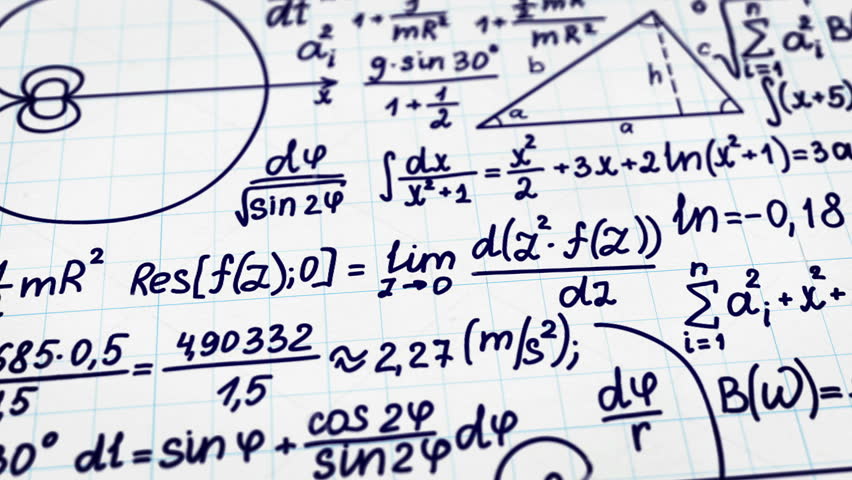 dt
a_i^2
x
1+1/mR^2
1+½mR^2/mR^2
g·sin 30°/(1+1/2)
b
h
c
a
a
√∑_{i=1}^{n} a_i^2 B
∫(x+5)
dφ/√sin 2φ
∫dx/(x^2+1) = x^2/2 +3x+2 ln(x^2+1)=3a
ln=-0,18
mR^2
Res[f(z);0] = lim_{z→0} d(z^2·f(z))/dz
∑_{i=1}^{n} a_i^2+x^2+
685·0,5/,5 = 4,90332/1,5 ≈ 2,27 (m/s^2);
30°
d1=sin φ + cos 2φ/sin 2φ dφ
dφ/r
B(w)=